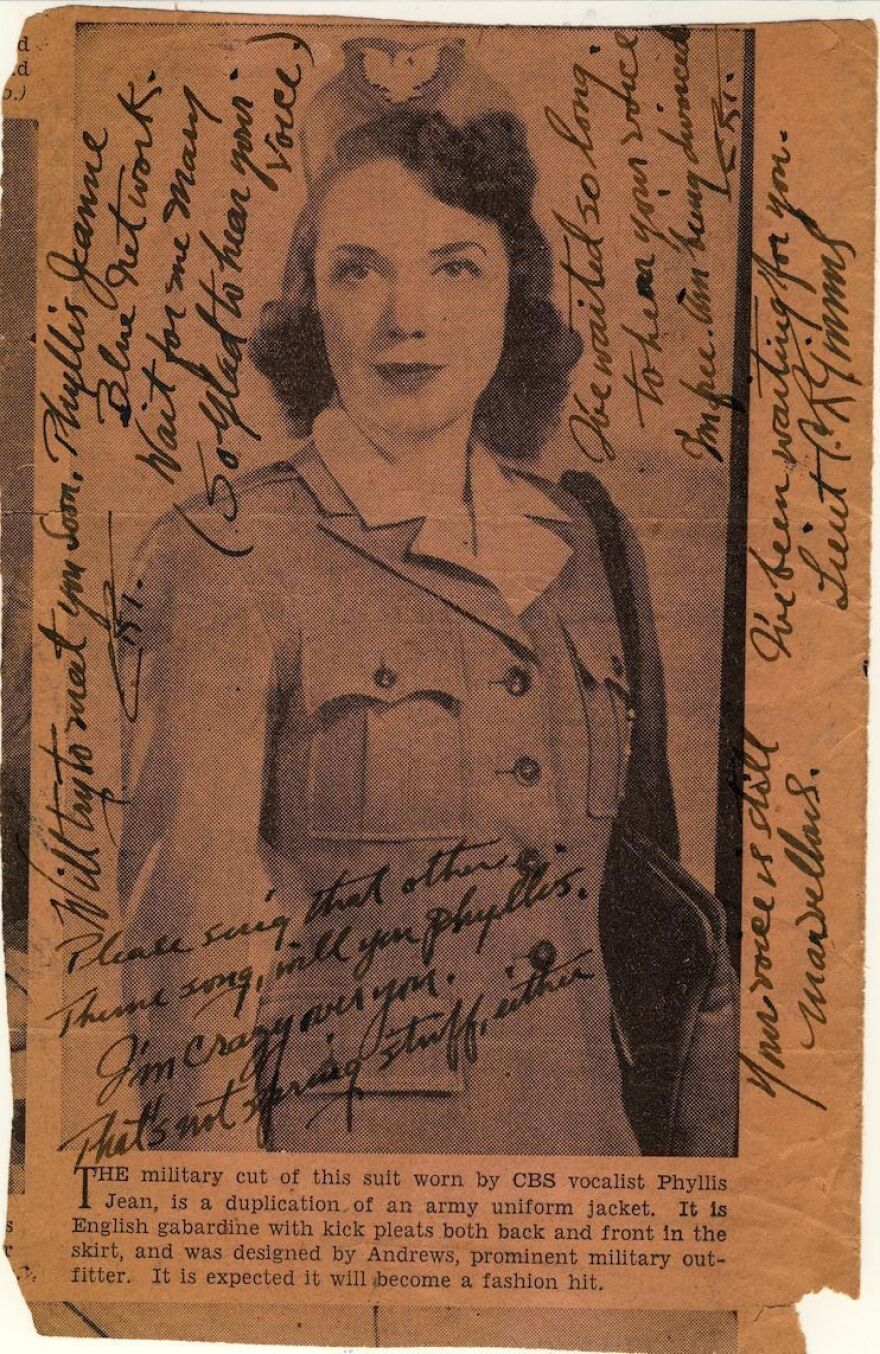 d
d
o.)
Will try to meat you soon. Phyllis Jeanne
Blue Network.
Wait for me Mary
(So glad to hear your
Voice.)
I've waited so long.
to hear your voice
I'm free. Am being divorced
I've been waiting for you.
Lieut
Your voice is still
marvellous.
Please sing that other
Theme song, will you Phyllis.
I'm crazy over you.
That's not spring stuff, either
THE military cut of this suit worn by CBS vocalist Phyllis
Jean, is a duplication of an army uniform jacket. It is
English gabardine with kick pleats both back and front in the
skirt, and was designed by Andrews, prominent military out-
fitter. It is expected it will become a fashion hit.
s
r